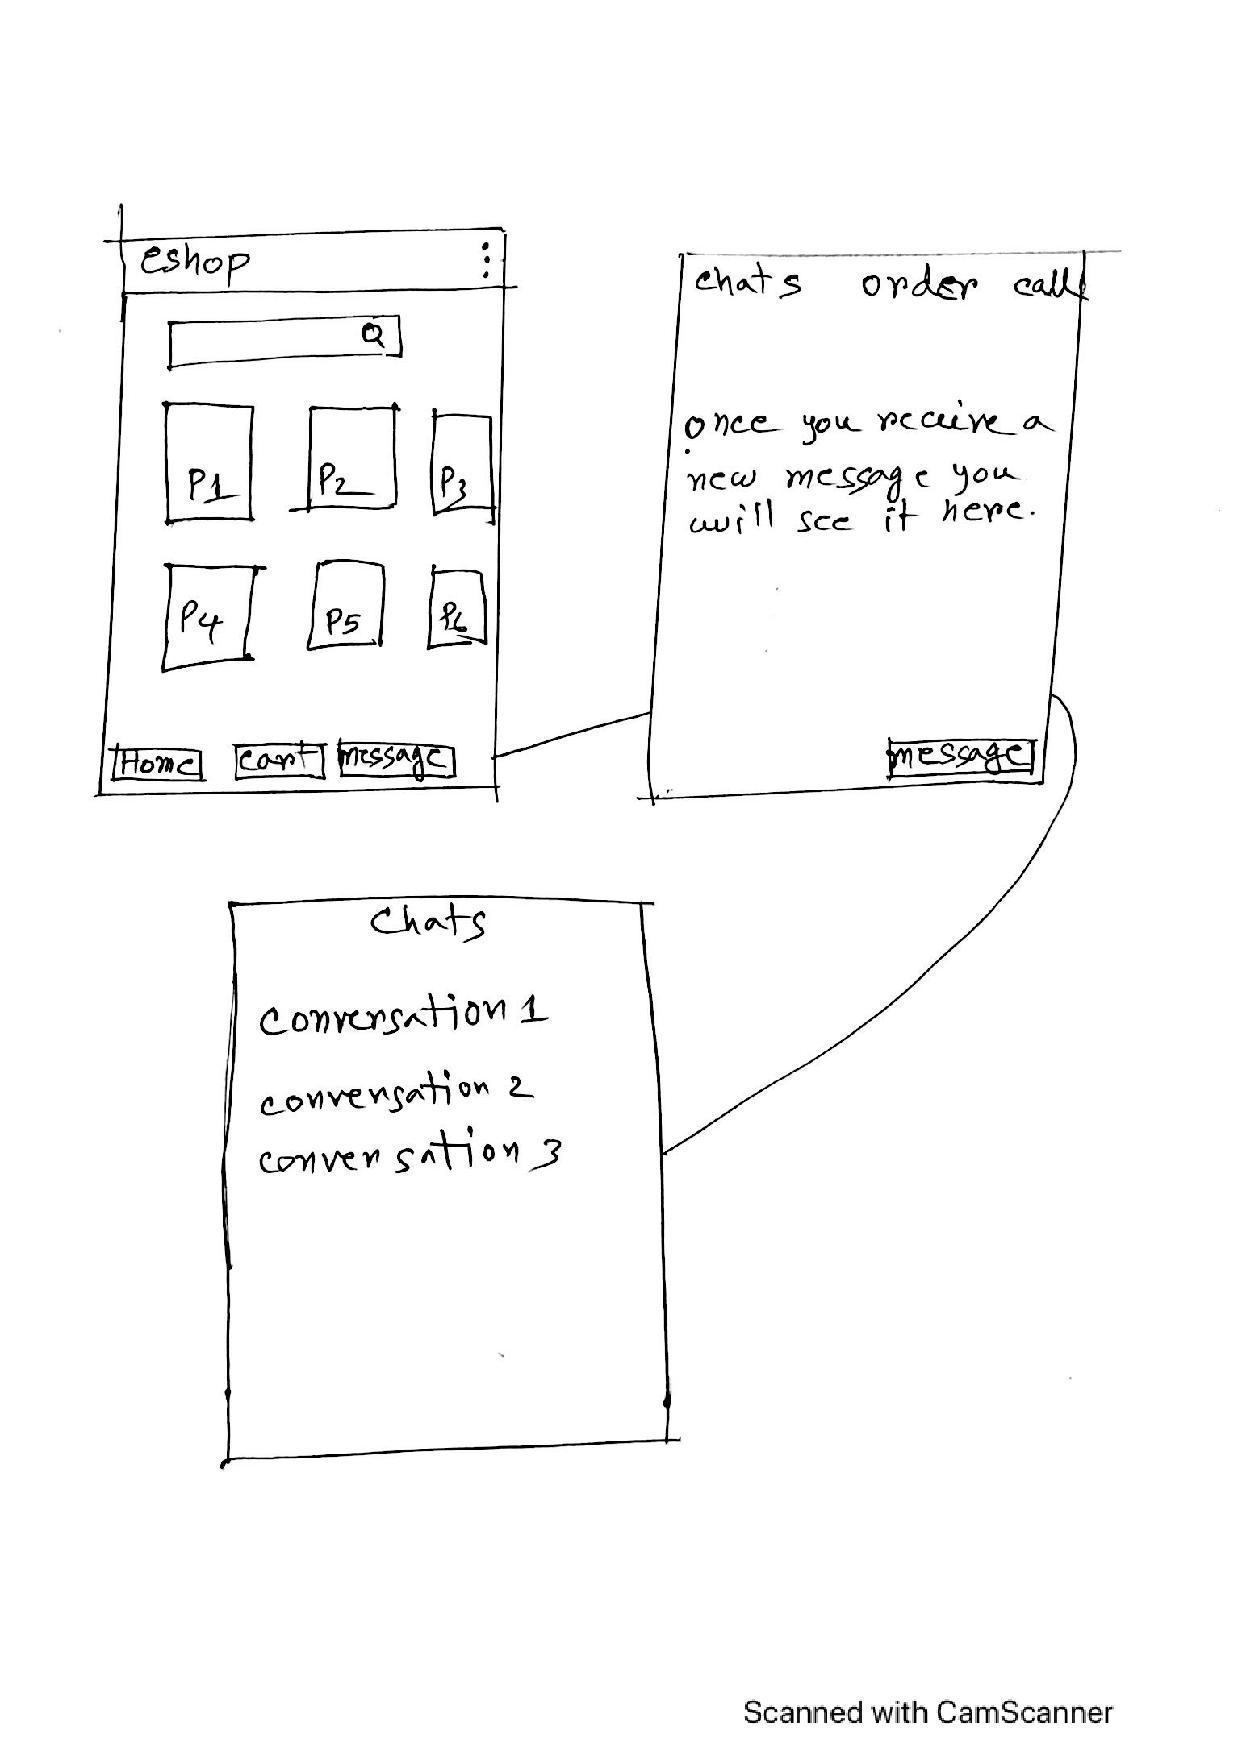 eshop
P1 P2 P3
P4 P5 P6
Home cart message
chats order call
once you receive a
new message you
will see it here.
message
Chats
conversation 1
conversation 2
conversation 3
Scanned with CamScanner